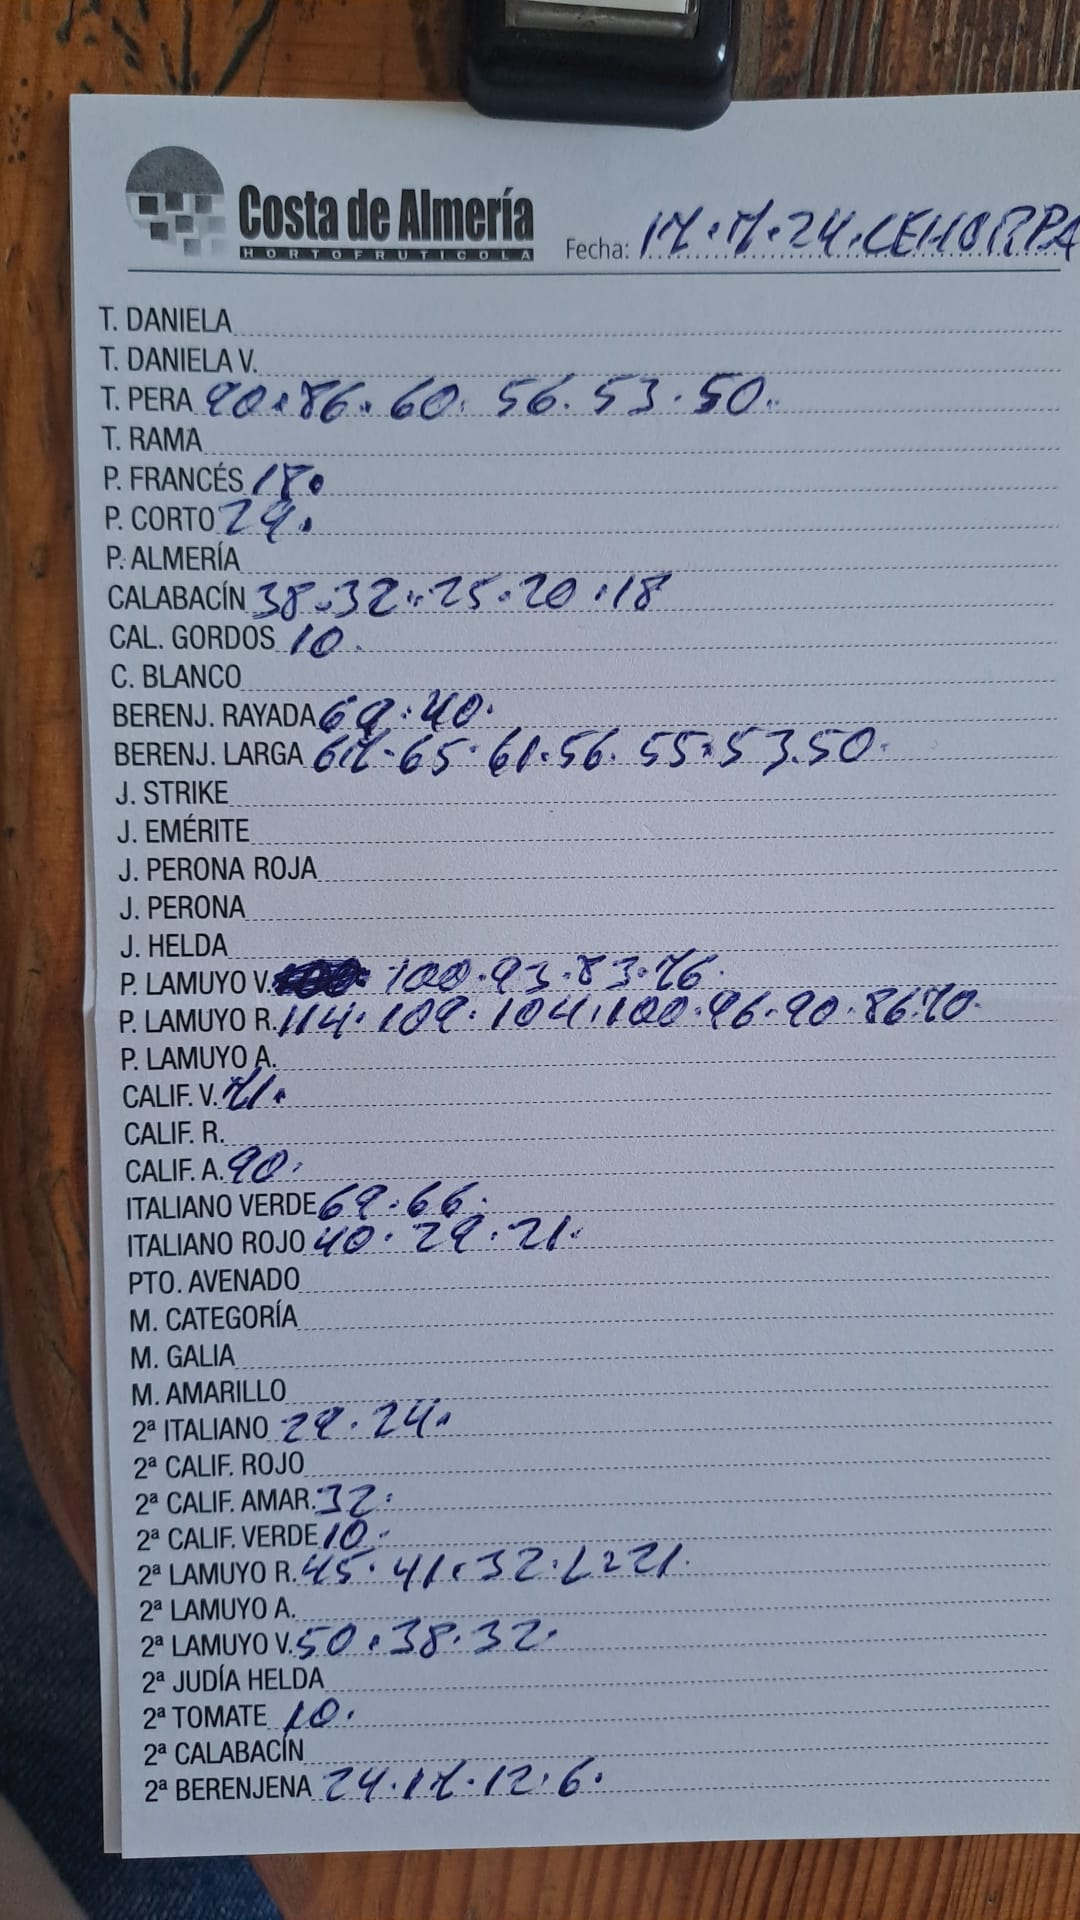 Costa de Almería
HORTOFRUTICOLA
Fecha: 17.7.24.CEHORPA
T. DANIELA
T. DANIELA V.
T. PERA 90.86.60. 56.53.50.
T. RAMA
P. FRANCÉS 18.
P. CORTO 29.
P. ALMERÍA
CALABACÍN 38.32.25.20.18
CAL. GORDOS 10.
C. BLANCO
BERENJ. RAYADA 69.40.
BERENJ. LARGA 67.65.61.56.55.53.50.
J. STRIKE
J. EMÉRITE
J. PERONA ROJA
J. PERONA
J. HELDA
P. LAMUYO V. 100.93.83.76.
P. LAMUYO R. 114.109.104.100.96.90.86.70.
P. LAMUYO A.
CALIF. V. 71.
CALIF. R.
CALIF. A. 90.
ITALIANO VERDE 69.66.
ITALIANO ROJO 40.29.21.
PTO. AVENADO
M. CATEGORÍA
M. GALIA
M. AMARILLO
2ª ITALIANO 29.24.
2ª CALIF. ROJO
2ª CALIF. AMAR. 32.
2ª CALIF. VERDE 10.
2ª LAMUYO R. 45.41.32. 21.
2ª LAMUYO A.
2ª LAMUYO V. 50.38.32.
2ª JUDÍA HELDA
2ª TOMATE 10.
2ª CALABACÍN
2ª BERENJENA 24.17.12.6.